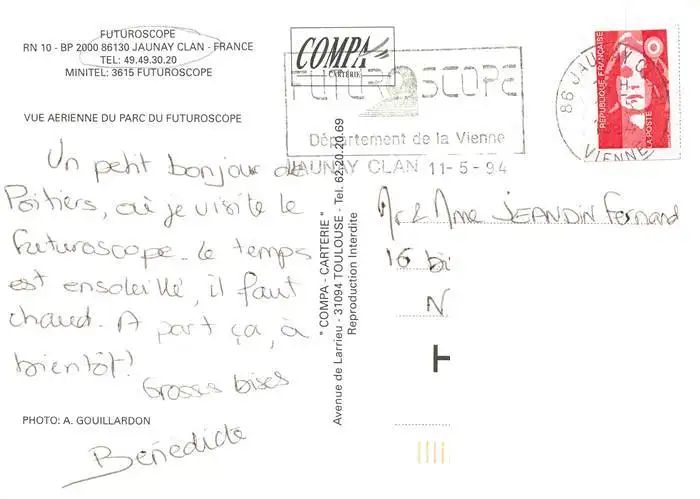 FUTUROSCOPE
RN 10 - BP 2000 86130 JAUNAY CLAN - FRANCE
TEL: 49.49.30.20
MINITEL: 3615 FUTUROSCOPE
VUE AERIENNE DU PARC DU FUTUROSCOPE
Un petit bonjour de
Poitiers, où je visite le
Futuroscope. le temps
est ensoleillé, il faut
chaud. A part ça, à
bientôt!
Grosses bises
PHOTO: A. GOUILLARDON
Bénédicte
COMPA
CARTERIE
FUTUROSCOPE
Département de la Vienne
JAUNAY CLAN 11-5-94
" COMPA - CARTERIE "
Avenue de Larrieu - 31094 TOULOUSE - Tel. 62.20.20.69
Reproduction Interdite
86 JAUNAY CLAN
VIENNE
REPUBLIQUE FRANÇAISE
LA POSTE
Mr & Mme JEANDIN Fernand
16 bi
N